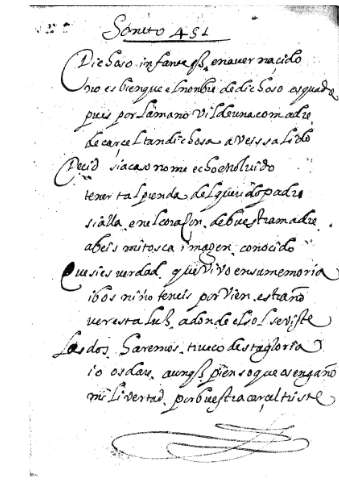 Soneto 451
Dichoso infante q̃ en aver nacido
no es bien que el nonbre de dichoso os quadre
pues por la mano vil de una comadre
de carcel tan dichosa aveis salido
Decid si acaso no me echo en olvido
tener tal prenda del querido padre
si alla en el coraçon de buestra madre
abeis mi tosca imagen conocido
Que si es verdad que vivo en su memoria
i bos niño teneis por vien estraño
ver esta luz adonde el sol se viste
Los dos haremos trueco de sta gloria
io os dare aunq̃ pienso que os engaño
mi livertad por buestra carcel triste